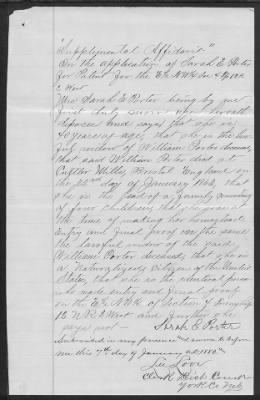 "Supplemental Affidavit"
On the application of Sarah E Porter
for Patent for the E½ NW¼ Sec 4 Tp 12 R
2 West
Mrs Sarah E Porter being by me
first duly sworn her oath
deposes and says that she is
40 years of age, that she is the law-
ful widow of William Porter deceased,
that said William Porter died at
Mills, Bristol England on
the 22nd day of January 1862, that
she is the head of a family consisting
of four children, that she was at
the time of making her homestead
Entry and final proof on the same
the lawful widow of the said
William Porter deceased, that she is
a Naturalized citizen of the United
States, that she is the identical person
who made entry and final proof
on the E½ NW¼ of Section 4 Township
12 N R 2 West and further she
says not —
Sarah E Porter
Subscribed in my presence & sworn to before
me this 7th day of January AD 1882
Lee Love
Clerk Dist Court
York Co Neb